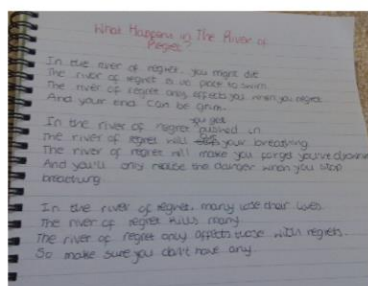 What Happens in The River of
Regret
In the river of regret, you might die
The river of regret is no place to swim.
The river of regret only effects you when you regret
And your end can be grim.
you get
In the river of regret pushed in
The river of regret will your breathing.
The river of regret will make you forget you're drowning
And you'll only realise the danger when you stop
breathing
In the river of regret, many lose their lives
The river of regret kills many
The river of regret only affects those with regrets.
So make sure you don't have any.